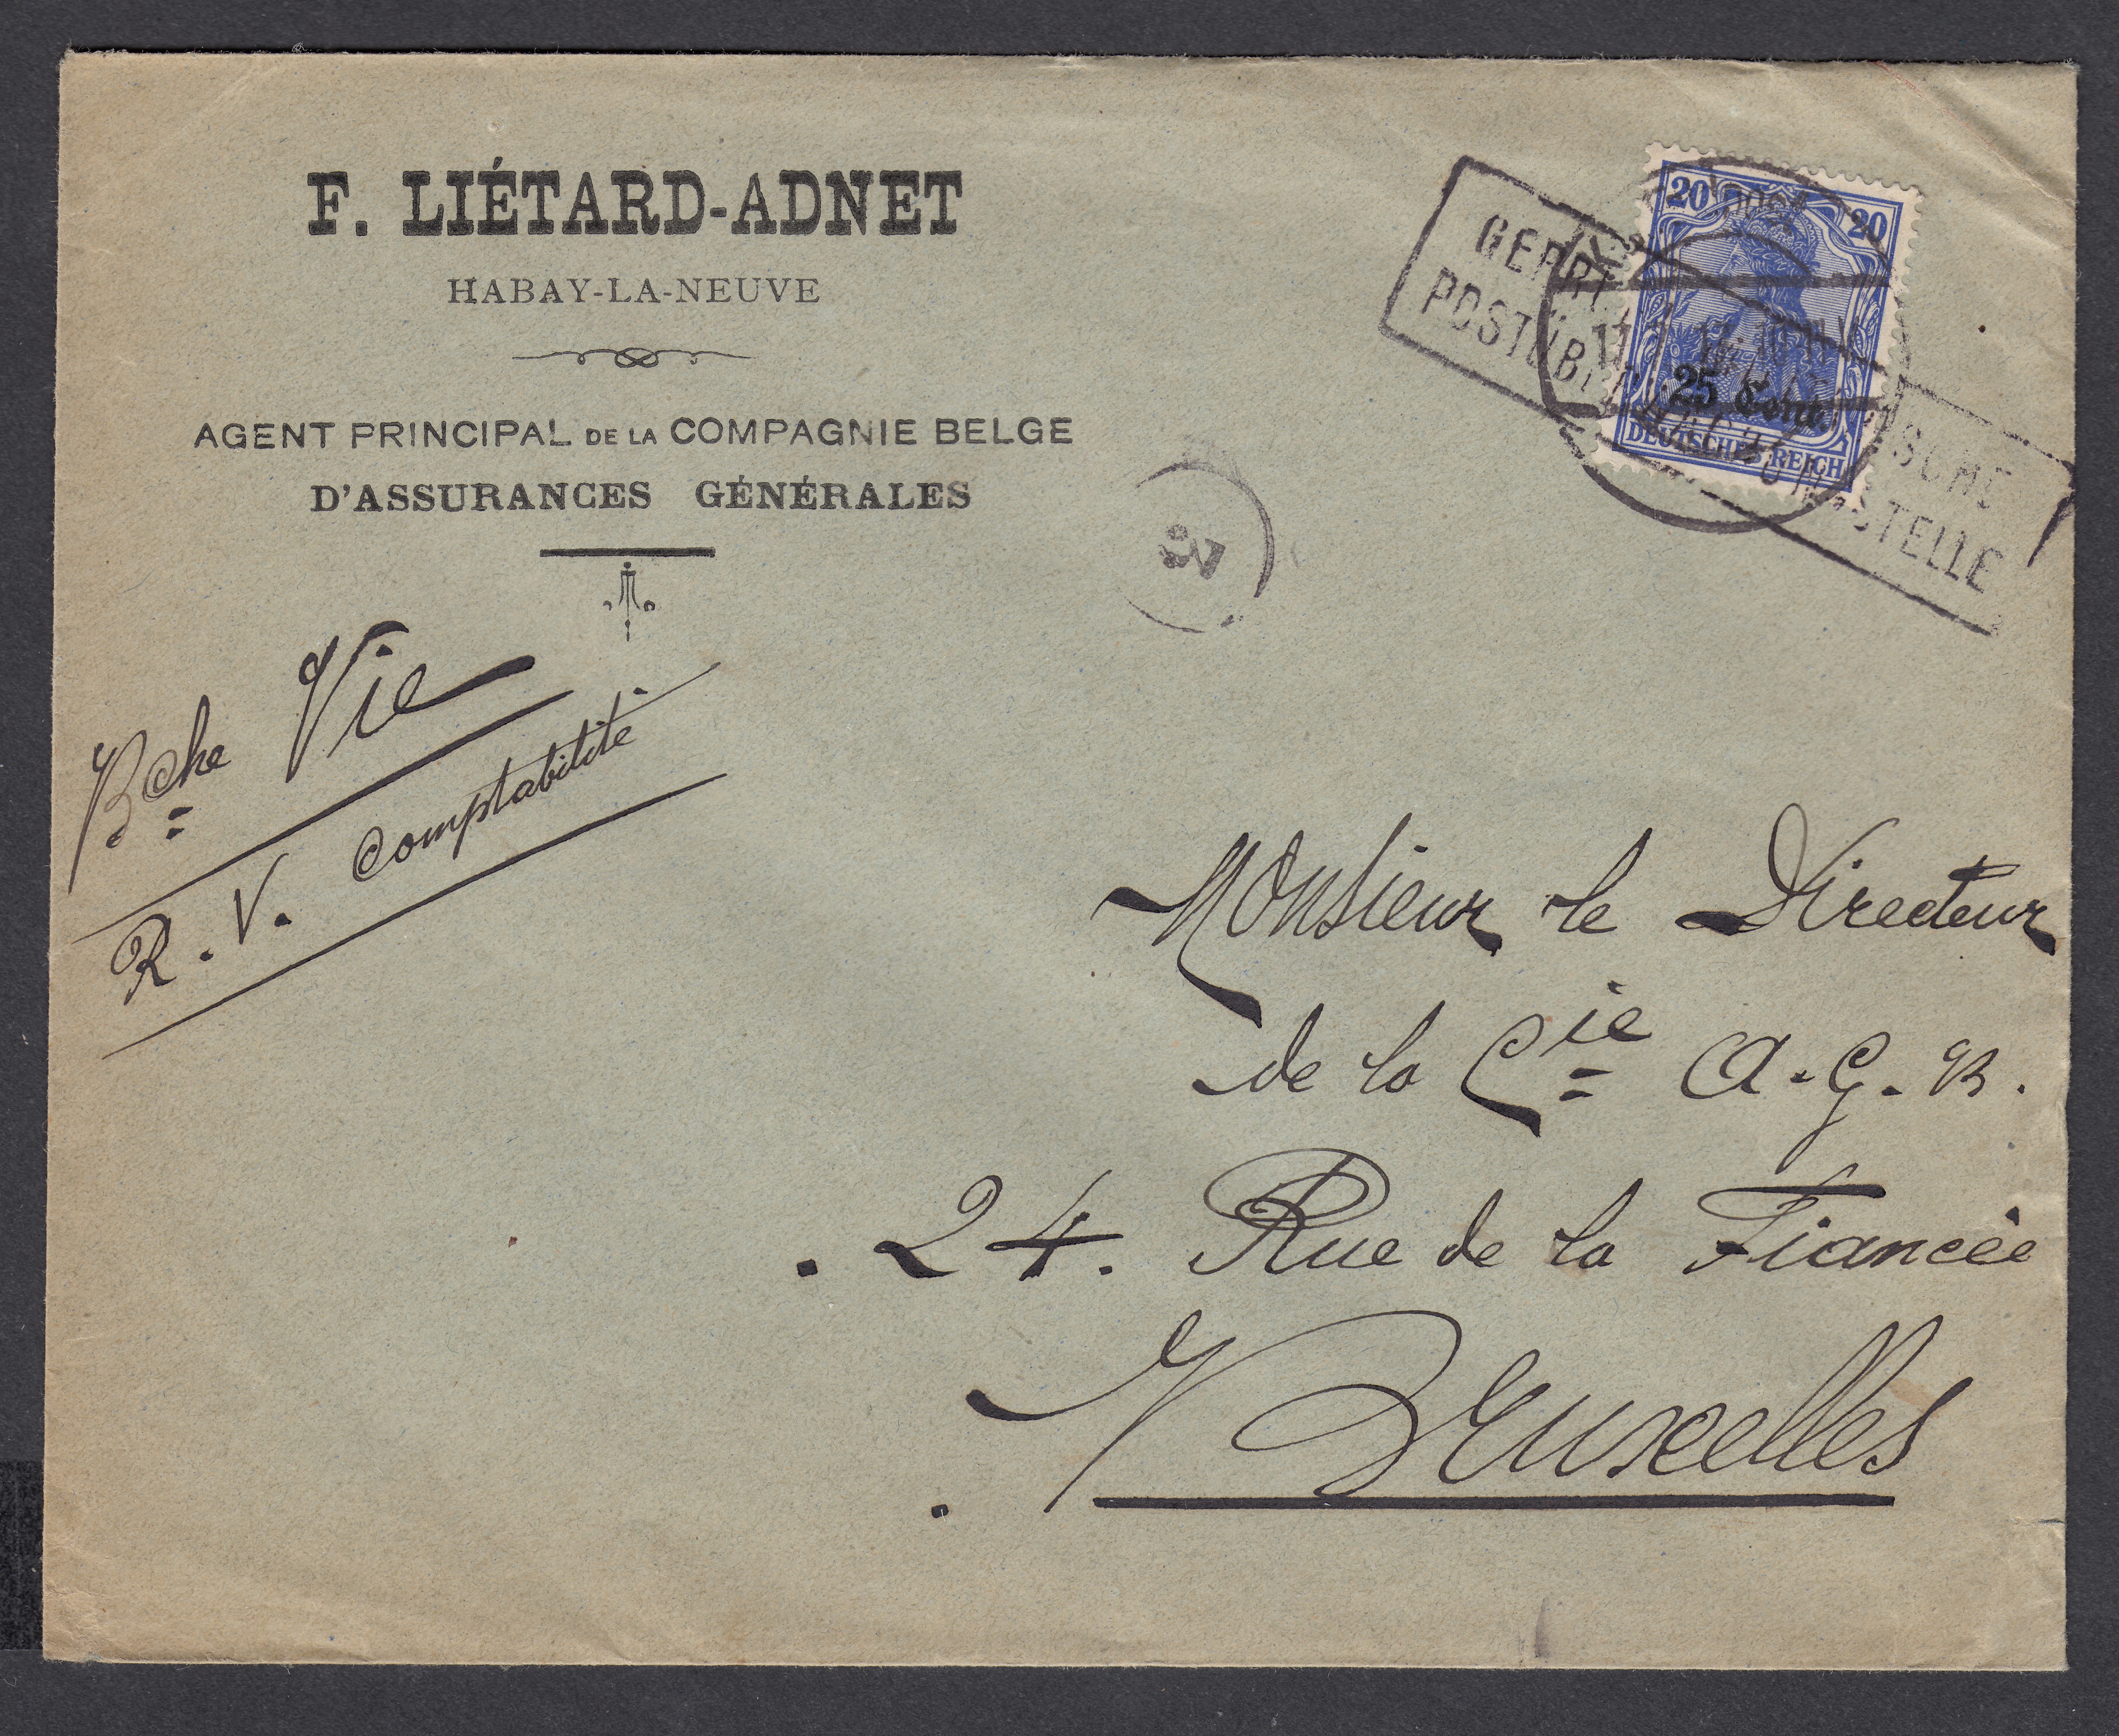 F. LIÉTARD-ADNET
HABAY-LA-NEUVE
AGENT PRINCIPAL DE LA COMPAGNIE BELGE
D'ASSURANCES GÉNÉRALES
Bche Vie
R. V. Comptabilité
20 20
25 Cent.
DEUTSCHES REICH
GEPR
POSTÜB STELLE
Monsieur le Directeur
de la Cie A. G. B.
24. Rue de la Fiancée
Bruxelles